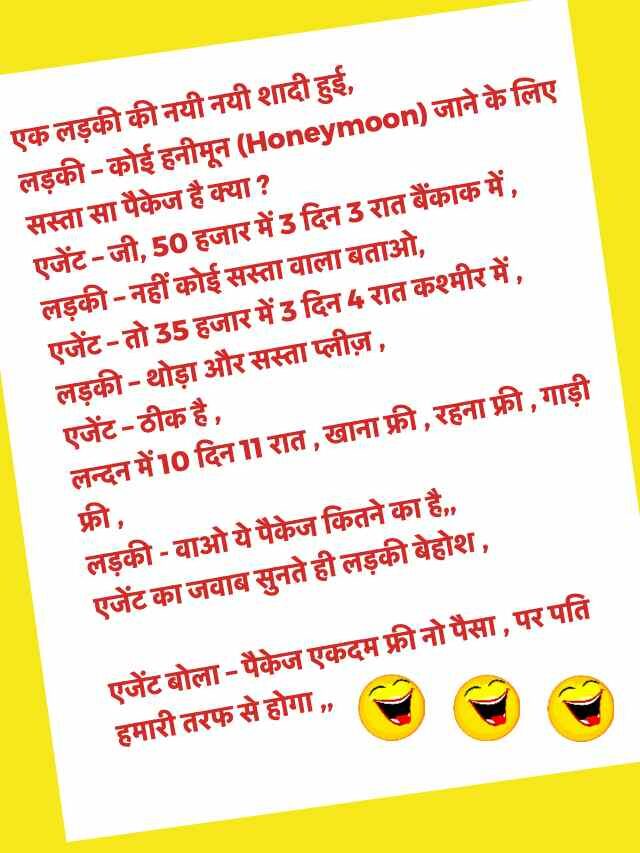 एक लड़की की नयी नयी शादी हुई,
लड़की – कोई हनीमून (Honeymoon) जाने के लिए
सस्ता सा पैकेज है क्या ?
एजेंट – जी, 50 हजार में 3 दिन 3 रात बैंकाक में ,
लड़की – नहीं कोई सस्ता वाला बताओ,
एजेंट – तो 35 हजार में 3 दिन 4 रात कश्मीर में ,
लड़की – थोड़ा और सस्ता प्लीज़ ,
एजेंट – ठीक है ,
लन्दन में 10 दिन 11 रात , खाना फ्री , रहना फ्री , गाड़ी
फ्री ,
लड़की - वाओ ये पैकेज कितने का है,,
एजेंट का जवाब सुनते ही लड़की बेहोश ,
एजेंट बोला – पैकेज एकदम फ्री नो पैसा , पर पति
हमारी तरफ से होगा ,,